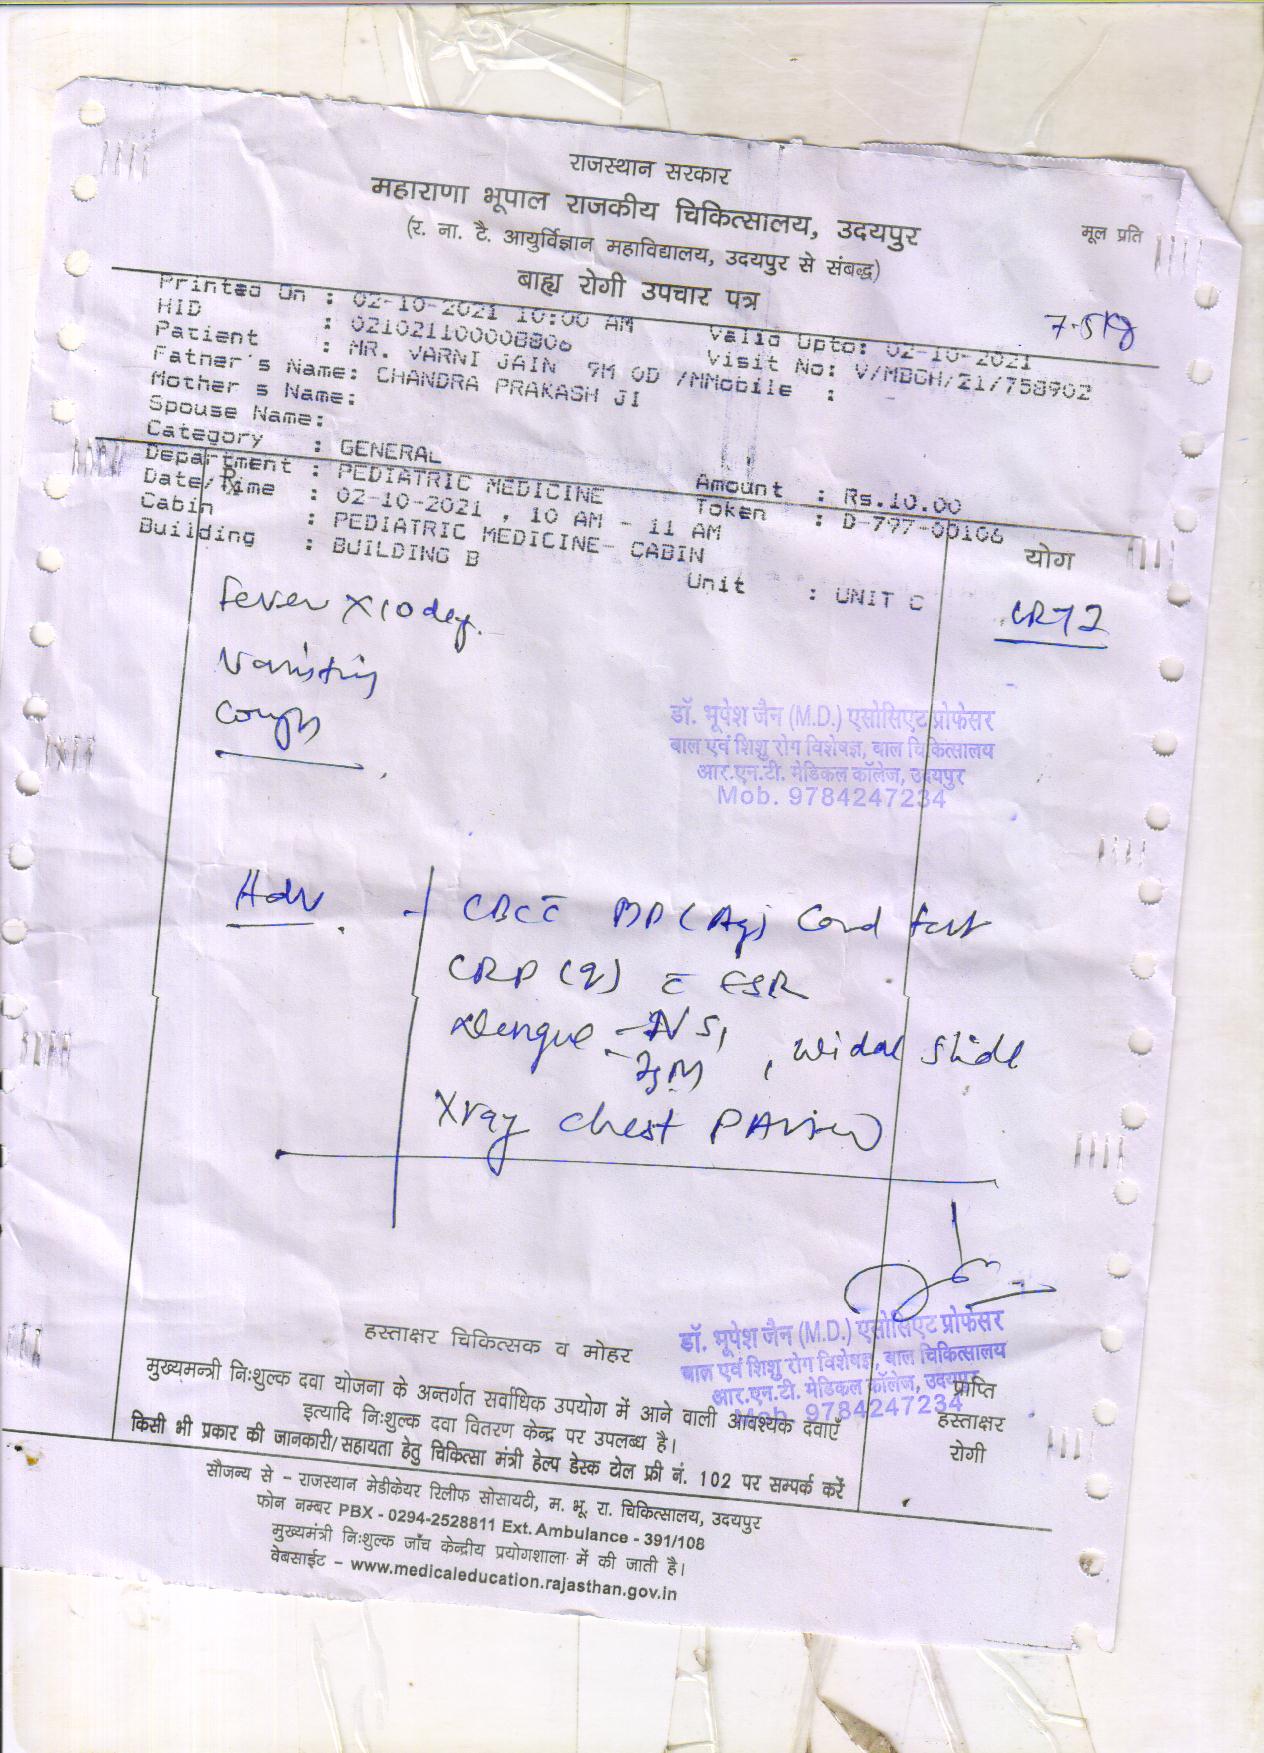 राजस्थान सरकार
महाराणा भूपाल राजकीय चिकित्सालय, उदयपुर
मूल प्रति
(र. ना. टै. आयुर्विज्ञान महाविद्यालय, उदयपुर से संबद्ध)
बाह्य रोगी उपचार पत्र
7.5kg
Printed On : 02-10-2021 10:00 AM Valid Upto: 02-10-2021
HID : 021021100008806 Visit No: V/MBGH/21/758902
Patient : MR. VARNI JAIN 9M OD /MMobile :
Father's Name: CHANDRA PRAKASH JI
Mother s Name:
Spouse Name:
Category : GENERAL Amount : Rs.10.00
Department : PEDIATRIC MEDICINE Token : D-797-00106
Date/Time : 02-10-2021 , 10 AM - 11 AM
Cabin : PEDIATRIC MEDICINE- CABIN
Building : BUILDING B Unit : UNIT C
Rx
योग
Fever x 10 day.
Cough
डॉ. भूपेश जैन (M.D.) एसोसिएट प्रोफेसर
बाल एवं शिशु रोग विशेषज्ञ, बाल चिकित्सालय
आर.एन.टी. मेडिकल कॉलेज, उदयपुर
Mob. 9784247234
Adv
- CBC c̄ MP (Ag) Card test
CRP (q) c̄ ESR
Dengue - NS1
- IgM , Widal slide
Xray chest PA view
हस्ताक्षर चिकित्सक व मोहर
डॉ. भूपेश जैन (M.D.) एसोसिएट प्रोफेसर
बाल एवं शिशु रोग विशेषज्ञ, बाल चिकित्सालय
आर.एन.टी. मेडिकल कॉलेज, उदयपुर
Mob. 9784247234
प्राप्ति
हस्ताक्षर
रोगी
मुख्यमन्त्री निःशुल्क दवा योजना के अन्तर्गत सर्वाधिक उपयोग में आने वाली आवश्यक दवाएँ
इत्यादि निःशुल्क दवा वितरण केन्द्र पर उपलब्ध है।
किसी भी प्रकार की जानकारी/सहायता हेतु चिकित्सा मंत्री हेल्प डेस्क टोल फ्री नं. 102 पर सम्पर्क करें
सौजन्य से – राजस्थान मेडीकेयर रिलीफ सोसायटी, म. भू. रा. चिकित्सालय, उदयपुर
फोन नम्बर PBX - 0294-2528811 Ext. Ambulance - 391/108
मुख्यमंत्री निःशुल्क जाँच केन्द्रीय प्रयोगशाला में की जाती है।
वेबसाईट – www.medicaleducation.rajasthan.gov.in